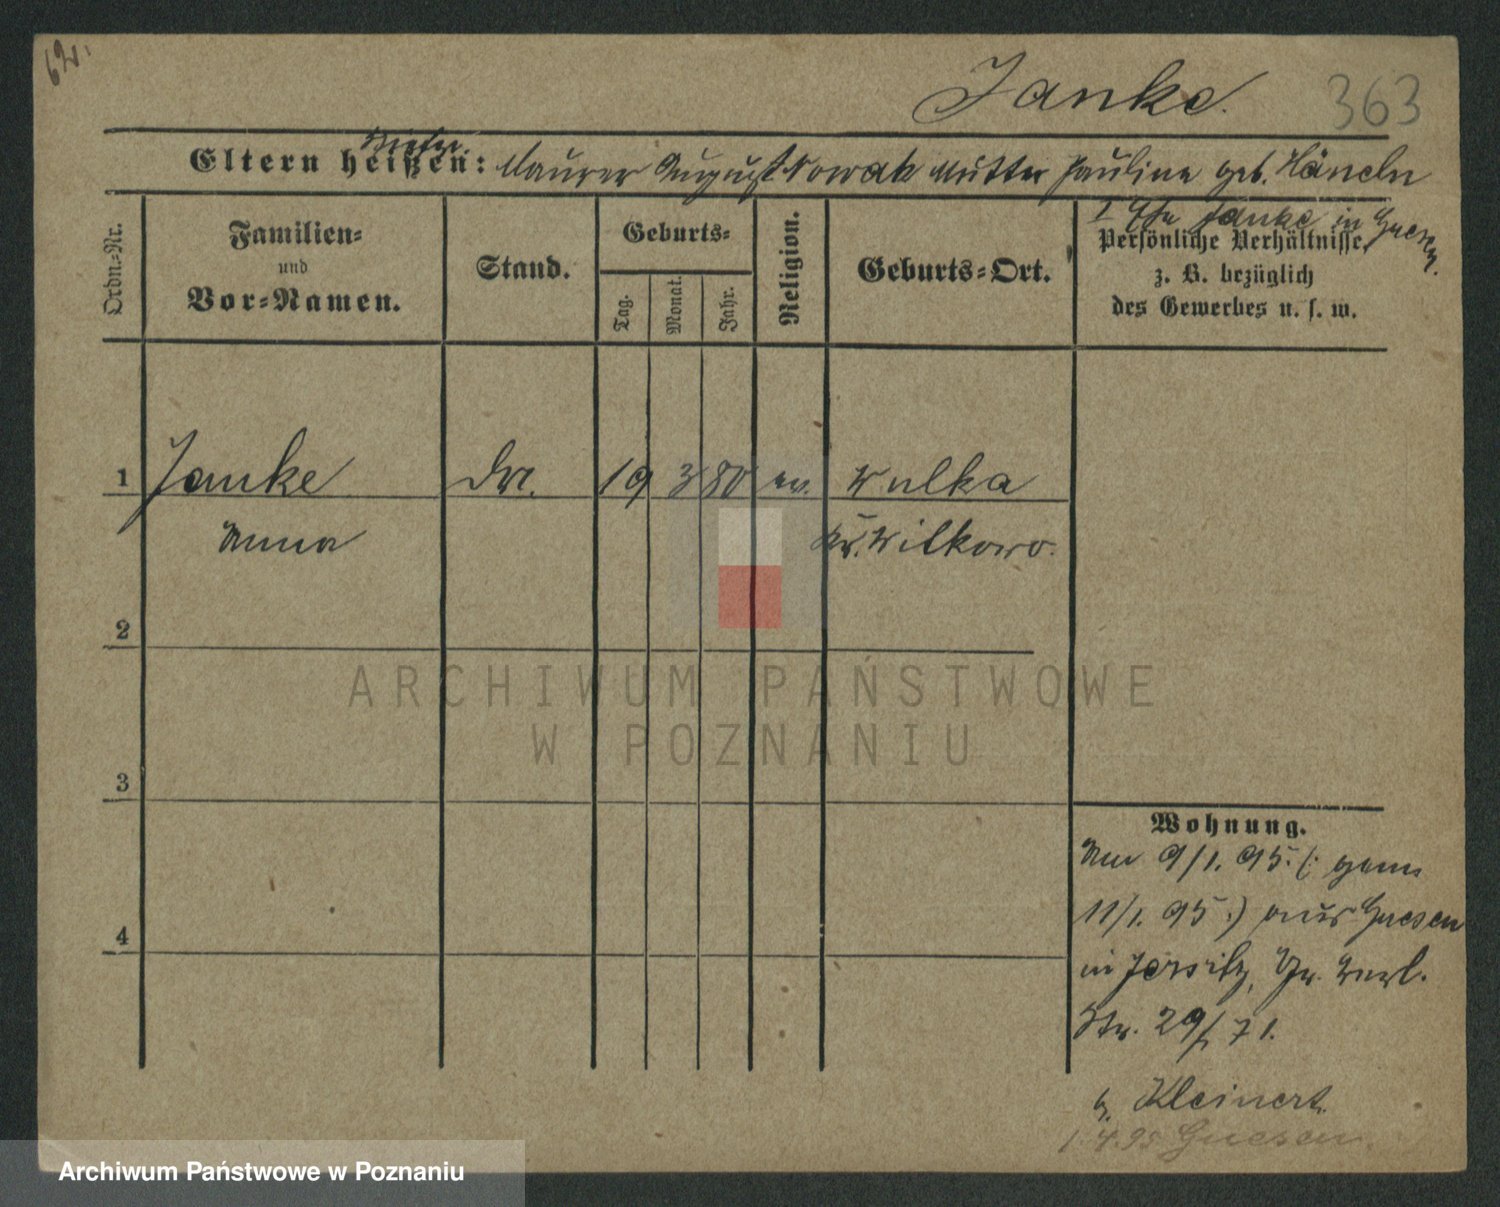 62.
Janke.
363
Eltern heißen: Maurer August Nowak Mutter Pauline geb.
I Ehe Janke in Gnesen.
Ordn.-Nr.
Familien-
und
Vor-Namen.
Stand.
Geburts-
Tag.
Monat.
Jahr.
Religion.
Geburts-Ort.
Persönliche Verhältnisse,
z. B. bezüglich
des Gewerbes u. s. w.
1 Janke 19 3 80 ev. Wulka
Anna Kr. Witkowo.
2
3
4
Wohnung.
Am 9/1. 95. (: gem.
11/1. 95 :) aus Gnesen
in Jersitz, Gr. Berl.
Str. 29/71.
b. Kleinert.
1.4.95 Gnesen
ARCHIWUM PAŃSTWOWE
W POZNANIU
Archiwum Państwowe w Poznaniu